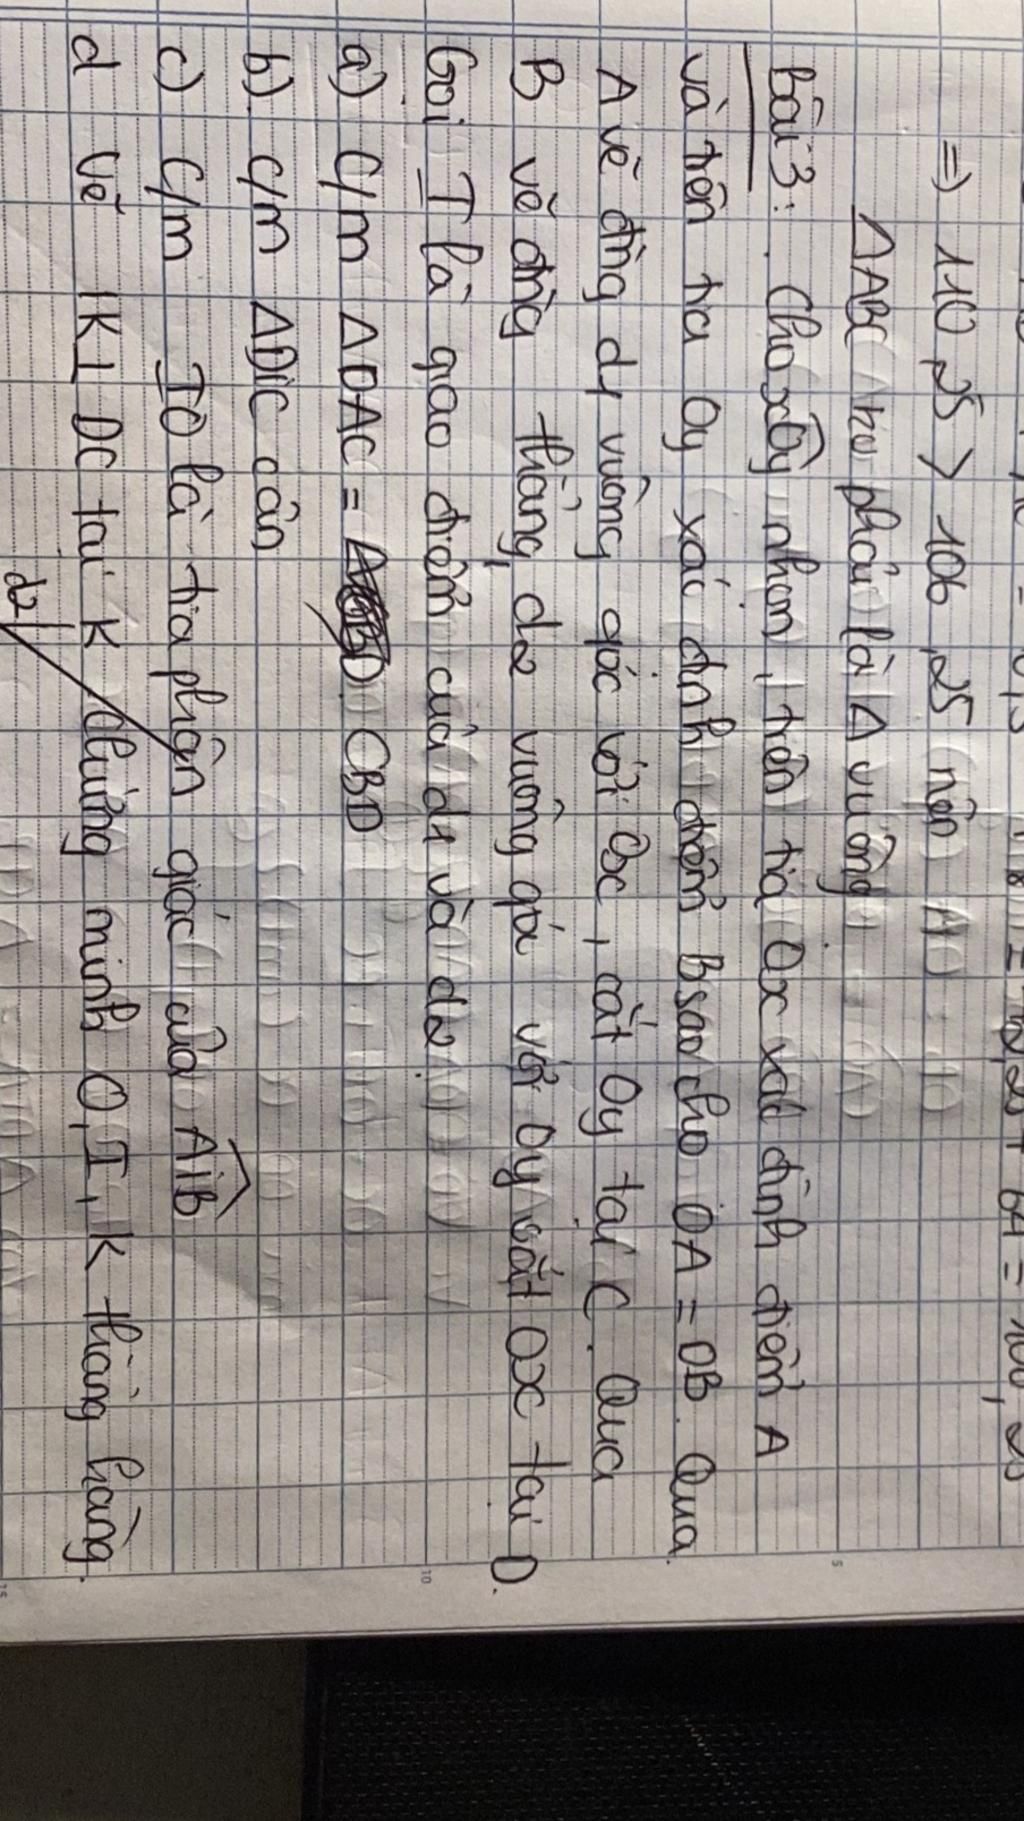 =) 110,25 > 106,25 nên
ΔABC khô phải là Δ vuông
Bài 3: Cho xOy nhọn, trên tia Ox xác định điểm A
và trên tia Oy xác định điểm B sao cho OA = OB. Qua
A vẽ đng d1 vuông góc với Ox, cắt Oy tại C. Qua
B vẽ đng thẳng d2 vuông góc với Oy cắt OX tại D.
Gọi I là giao điểm của d1 và d2.
a) C/m Δ DAC = CBD
b) C/m ΔDIC cân
c) C/m IO là tia phân giác của AIB
d Vẽ IK⊥ DC tại K chứng minh O, I, K thẳng hàng.
d2
5
10
15